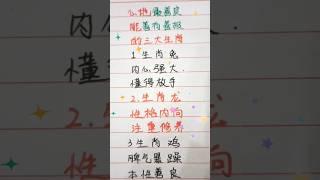 心地最善良
能善有善报
的三大生肖
1生肖兔
内心强大.
懂得放手
2.生肖龙
性格内向
注重修养
3生肖鸡
脾气暴躁
本性善良